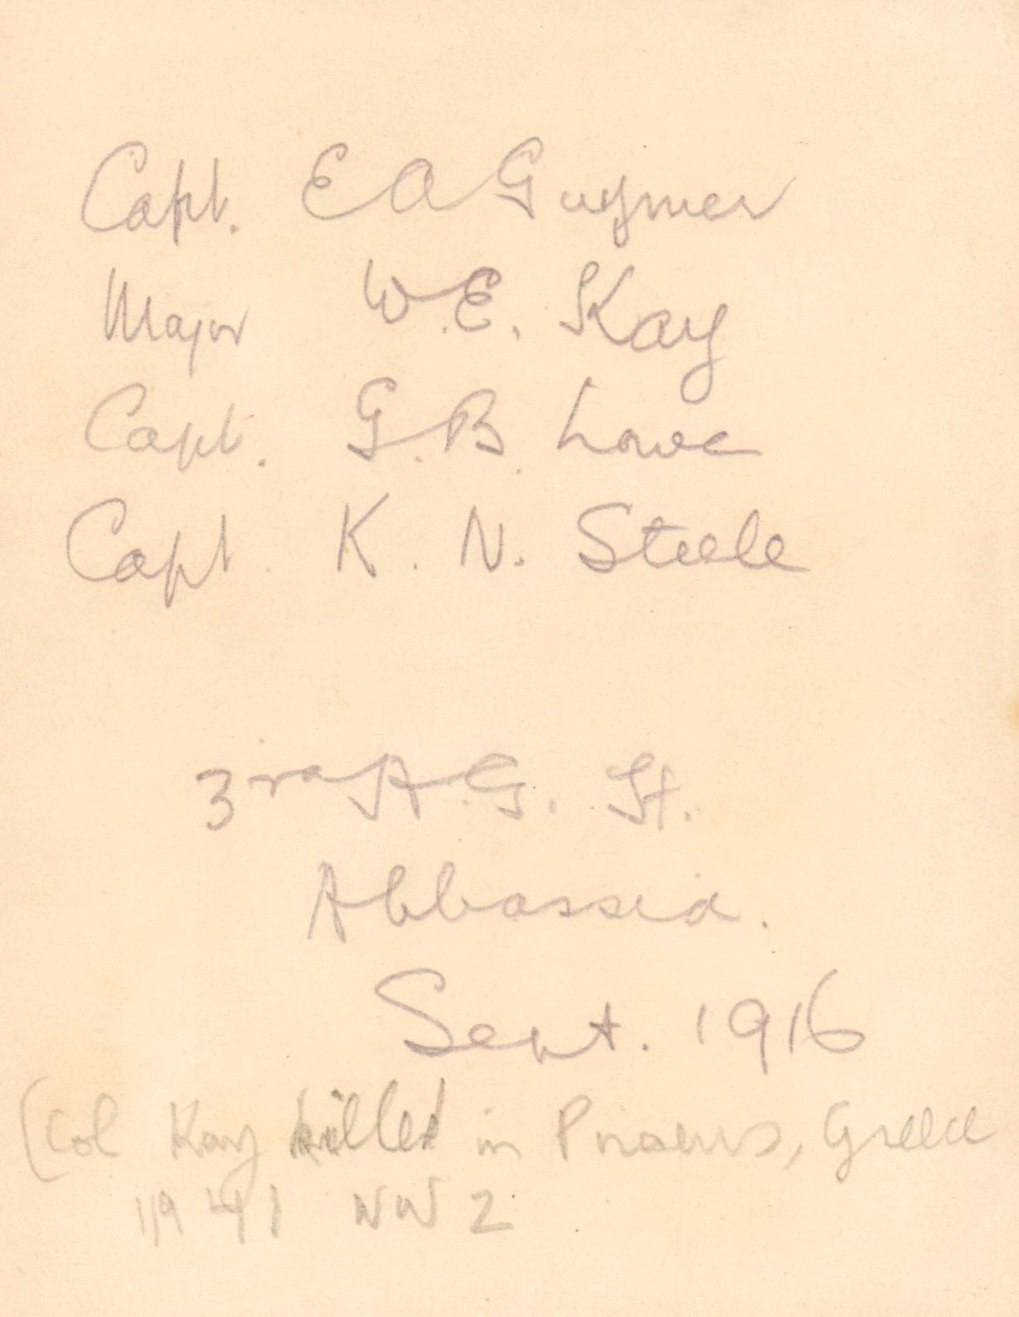 Capt. E A Guymer
Major W. E. Kay
Capt. G. B. Lowe
Capt. K. N. Steele
3rd A. G. H.
Abbassia.
Sept. 1916
(Col Kay killed in Piraeus, Greece
1941 WW 2